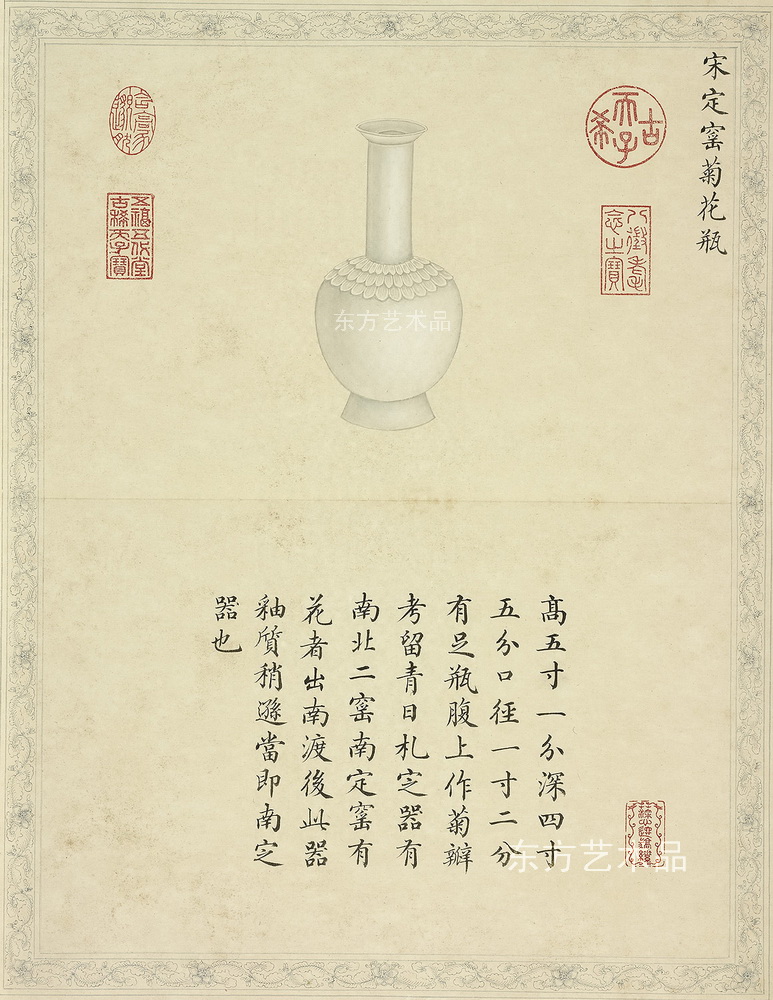 宋定窰菊花瓶
古希天子
八徵耄念之寶
五福五代堂古稀天子寶
东方艺术品
髙五寸一分深四寸
五分口徑一寸二分
有足瓶腹上作菊瓣
考留青日札㝎器有
南北二窰南定窰有
花者出南渡後此器
釉質稍遜當即南㝎
器也
东方艺术品